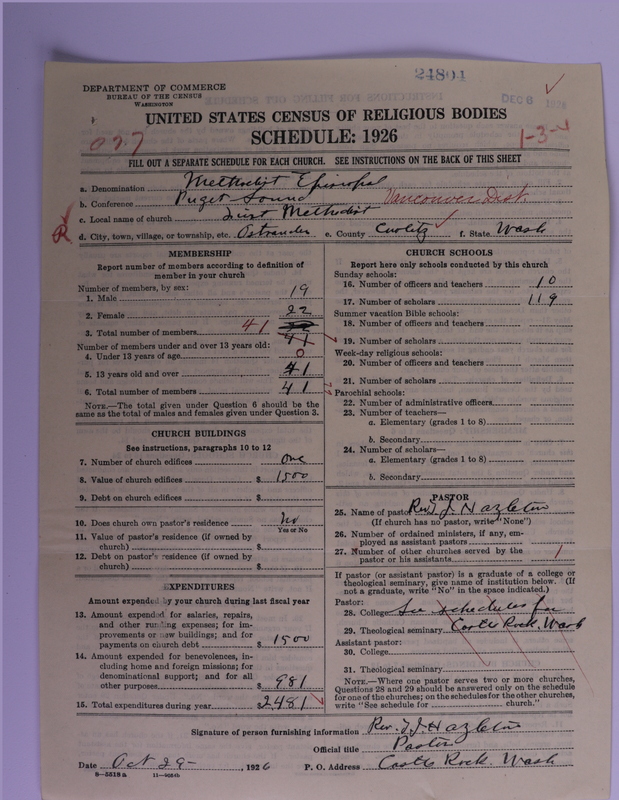 24804
DEPARTMENT OF COMMERCE
BUREAU OF THE CENSUS
WASHINGTON
DEC 8 1926
UNITED STATES CENSUS OF RELIGIOUS BODIES
SCHEDULE: 1926
1-3-4
FILL OUT A SEPARATE SCHEDULE FOR EACH CHURCH. SEE INSTRUCTIONS ON THE BACK OF THIS SHEET
a. Denomination Methodist Episcopal
b. Conference Puget Sound Vancouver Dist.
c. Local name of church First Methodist
d. City, town, village, or township, etc. Ostrander e. County Cowlitz f. State Wash
MEMBERSHIP
Report number of members according to definition of
member in your church
Number of members, by sex:
1. Male 19
2. Female 22
3. Total number of members 41 41
Number of members under and over 13 years old:
4. Under 13 years of age 0
5. 13 years old and over 41
6. Total number of members 41
NOTE.—The total given under Question 6 should be the
same as the total of males and females given under Question 3.
CHURCH BUILDINGS
See instructions, paragraphs 10 to 12
7. Number of church edifices one
8. Value of church edifices $1500
9. Debt on church edifices $
10. Does church own pastor's residence no
Yes or No
11. Value of pastor's residence (if owned by
church) $
12. Debt on pastor's residence (if owned by
church) $
EXPENDITURES
Amount expended by your church during last fiscal year
13. Amount expended for salaries, repairs,
and other running expenses; for im-
provements or new buildings; and for
payments on church debt $1500
14. Amount expended for benevolences, in-
cluding home and foreign missions; for
denominational support; and for all
other purposes $981
15. Total expenditures during year $2481
CHURCH SCHOOLS
Report here only schools conducted by this church
Sunday schools:
16. Number of officers and teachers 10
17. Number of scholars 119
Summer vacation Bible schools:
18. Number of officers and teachers
19. Number of scholars
Week-day religious schools:
20. Number of officers and teachers
21. Number of scholars
Parochial schools:
22. Number of administrative officers
23. Number of teachers—
a. Elementary (grades 1 to 8)
b. Secondary
24. Number of scholars—
a. Elementary (grades 1 to 8)
b. Secondary
PASTOR
25. Name of pastor Rev. T J Hazleton
(If church has no pastor, write "None")
26. Number of ordained ministers, if any, em-
ployed as assistant pastors
27. Number of other churches served by the
pastor or his assistants 1
If pastor (or assistant pastor) is a graduate of a college or
theological seminary, give name of institution below. (If
not a graduate, write "No" in the space indicated.)
Pastor:
28. College See schedules for
29. Theological seminary Castle Rock, Wash
Assistant pastor:
30. College
31. Theological seminary
NOTE.—Where one pastor serves two or more churches,
Questions 28 and 29 should be answered only on the schedule
for one of the churches; on the schedules for the other churches,
write "See schedule for church."
Signature of person furnishing information Rev. T J Hazleton
Official title Pastor
Date Oct 29-, 1926 P. O. Address Castle Rock. Wash
8-5518a 11-9064b